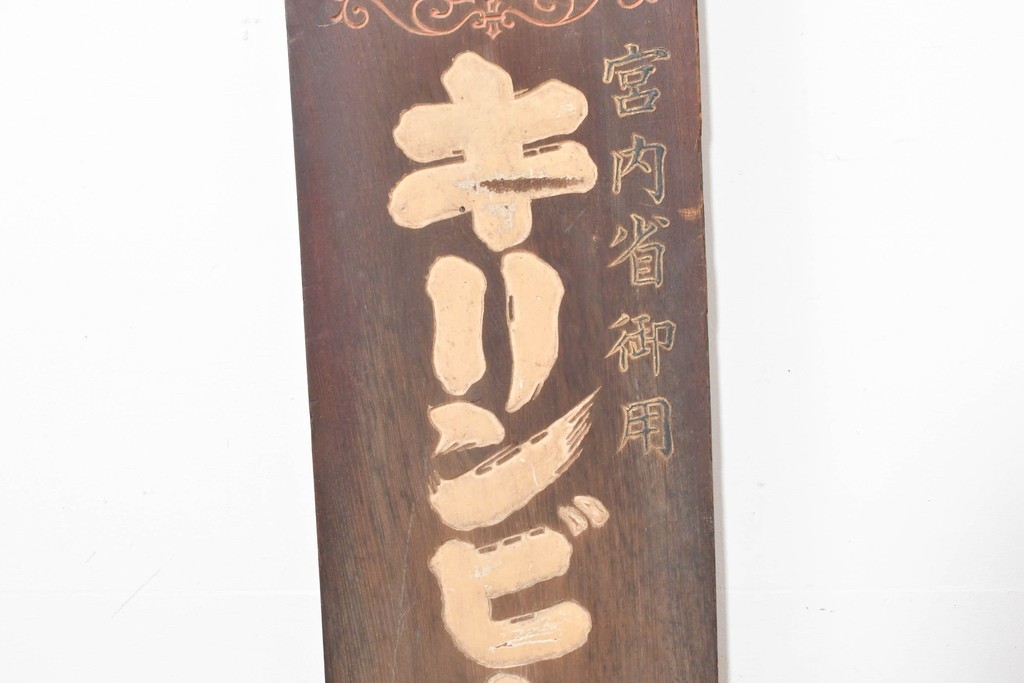 宮内省御用
キリンビ